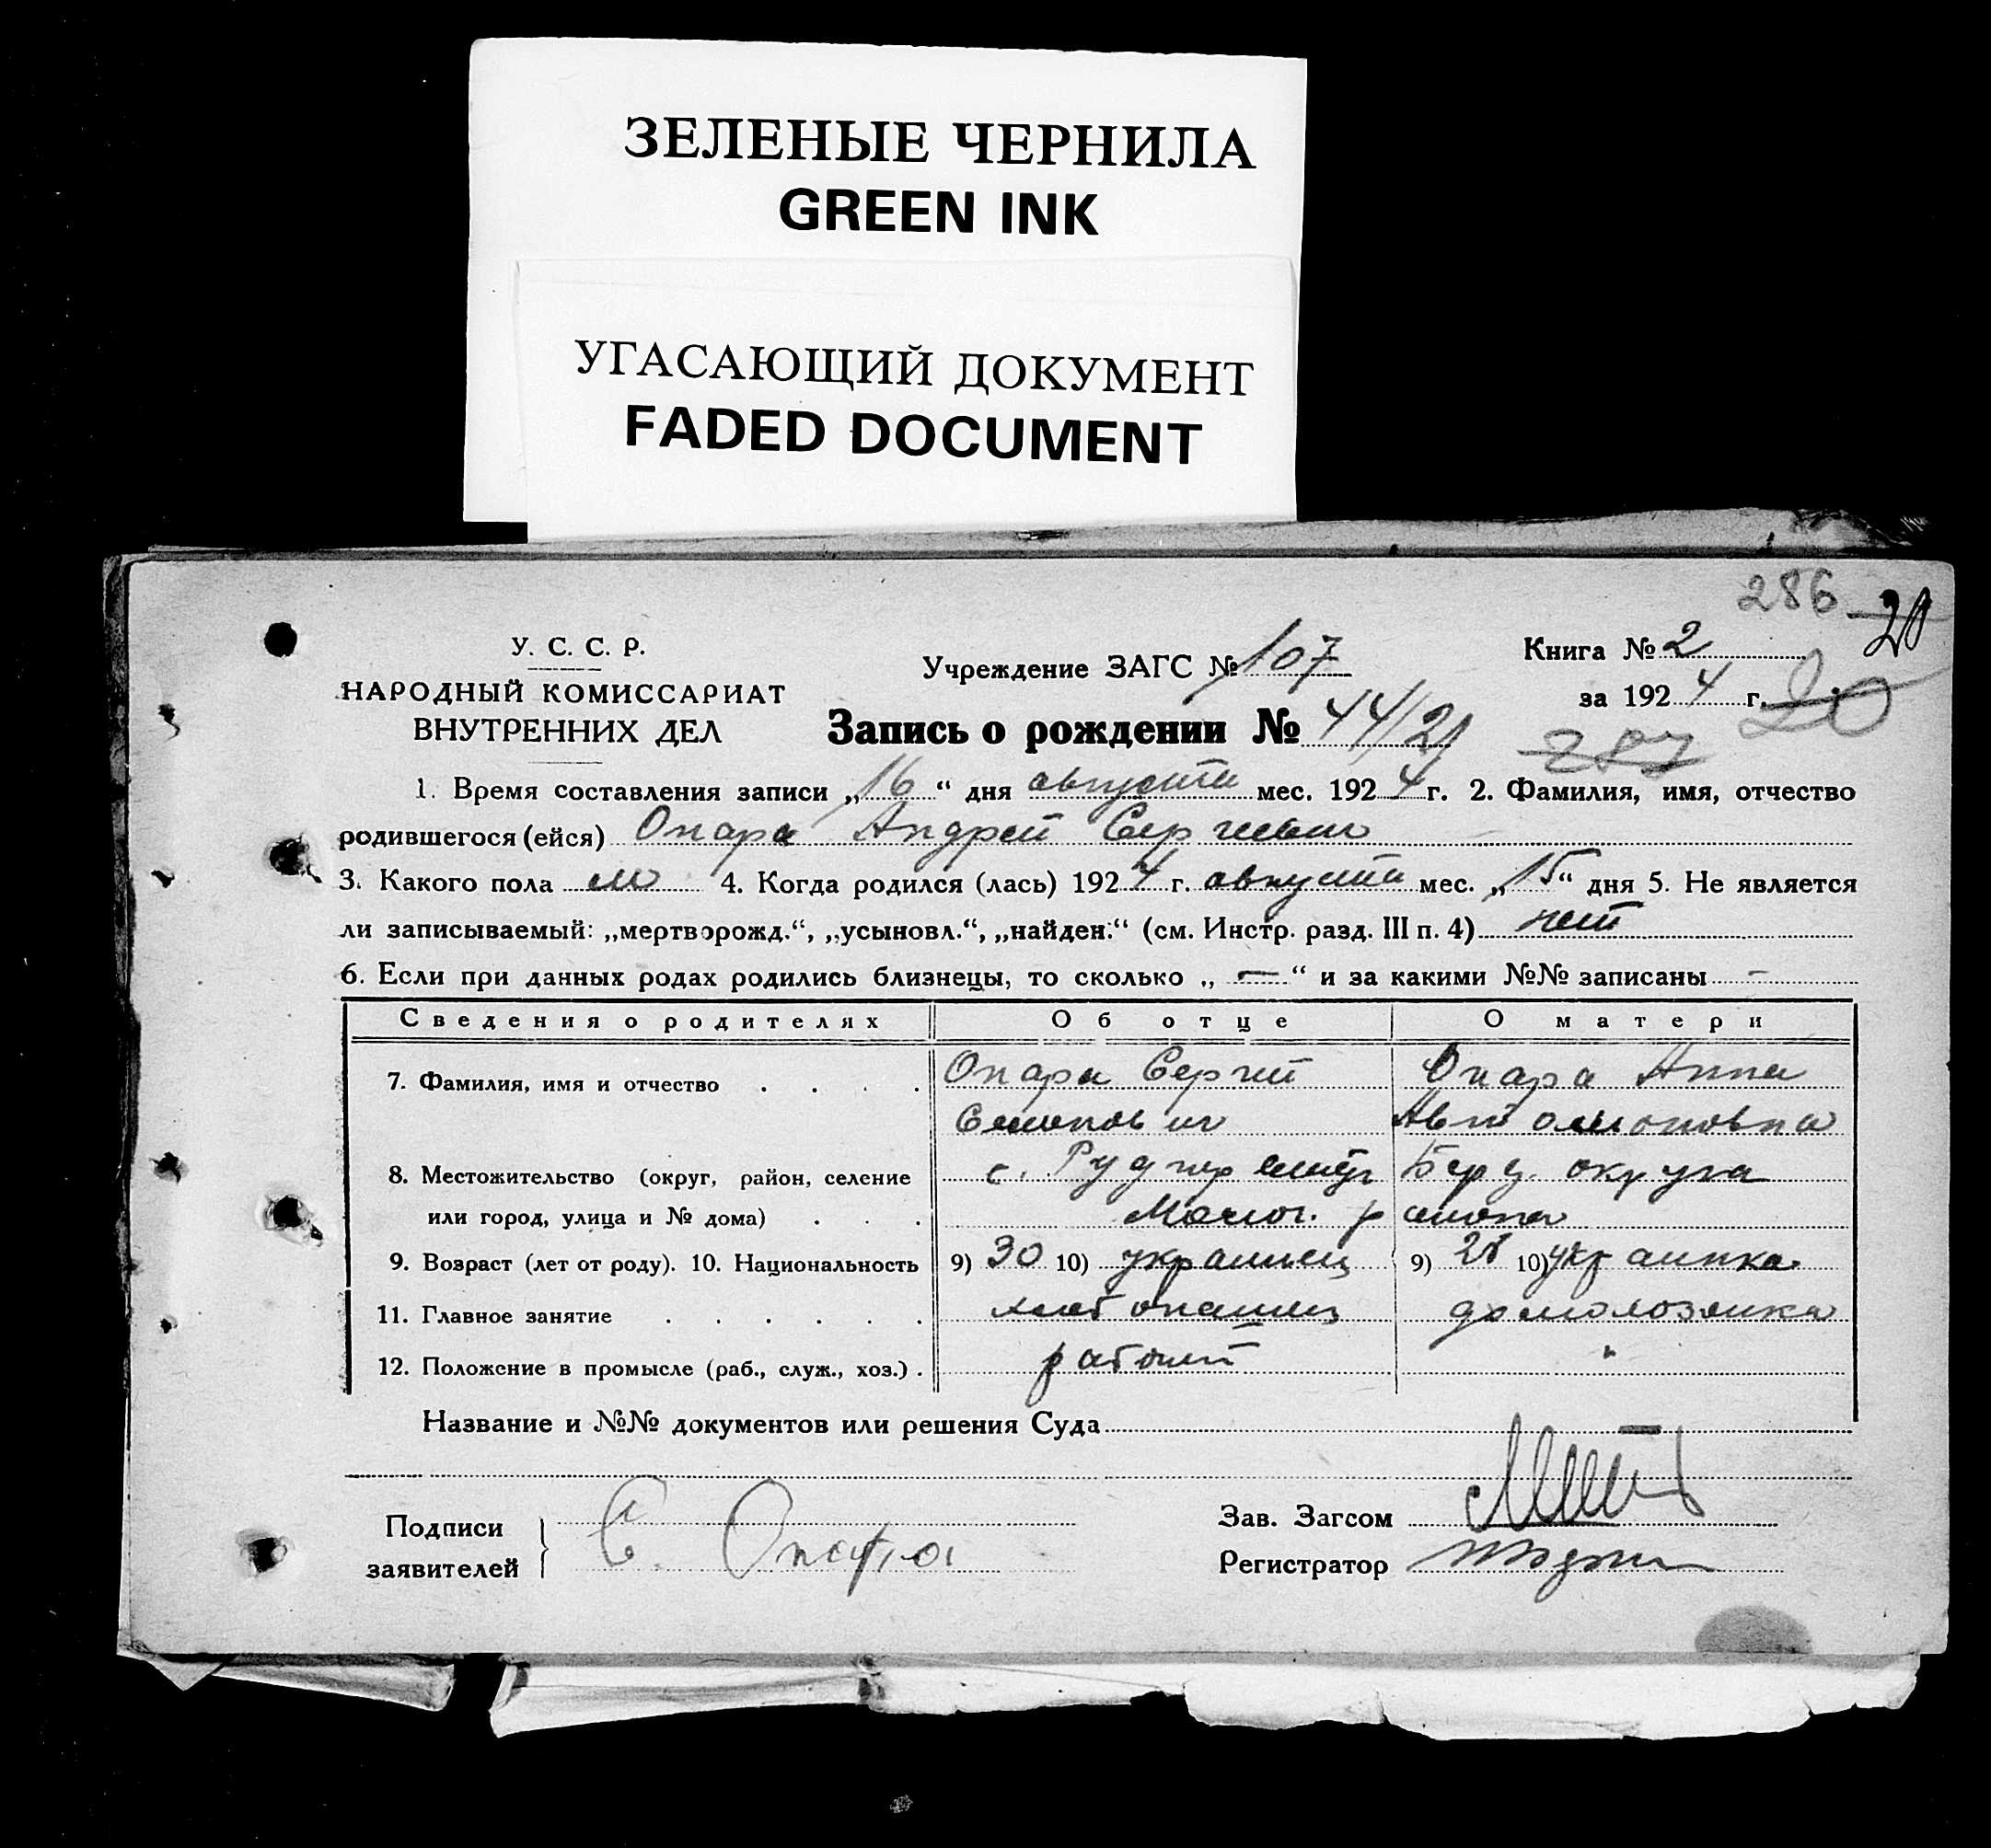 ЗЕЛЕНЫЕ ЧЕРНИЛА
GREEN INK
УГАСАЮЩИЙ ДОКУМЕНТ
FADED DOCUMENT
286 20
У. С. С. Р.
НАРОДНЫЙ КОМИССАРИАТ
ВНУТРЕННИХ ДЕЛ
Учреждение ЗАГС № 107
Книга № 2
за 1924 г. 20
Запись о рождении № 44/21
287
1. Время составления записи „16“ дня августа мес. 1924 г. 2. Фамилия, имя, отчество
родившегося (ейся) Опара Андрей Сергеев
3. Какого пола м 4. Когда родился (лась) 1924 г. августа мес. „15“ дня 5. Не является
ли записываемый: „мертворожд.“, „усыновл.“, „найден.“ (см. Инстр. разд. III п. 4) нет
6. Если при данных родах родились близнецы, то сколько „ — “ и за какими №№ записаны —
Сведения о родителях Об отце О матери
7. Фамилия, имя и отчество Опара Сергей Опара Анна
Семенович Автомоновна
8. Местожительство (округ, район, селение с. Берд. округа
или город, улица и № дома)
9. Возраст (лет от роду). 10. Национальность 9) 30 10) украинец 9) 28 10) украинка
11. Главное занятие хлебопашец домохозяйка
12. Положение в промысле (раб., служ., хоз.) рабочий "
Название и №№ документов или решения Суда —
Подписи
заявителей
С. Опара
Зав. Загсом
Регистратор